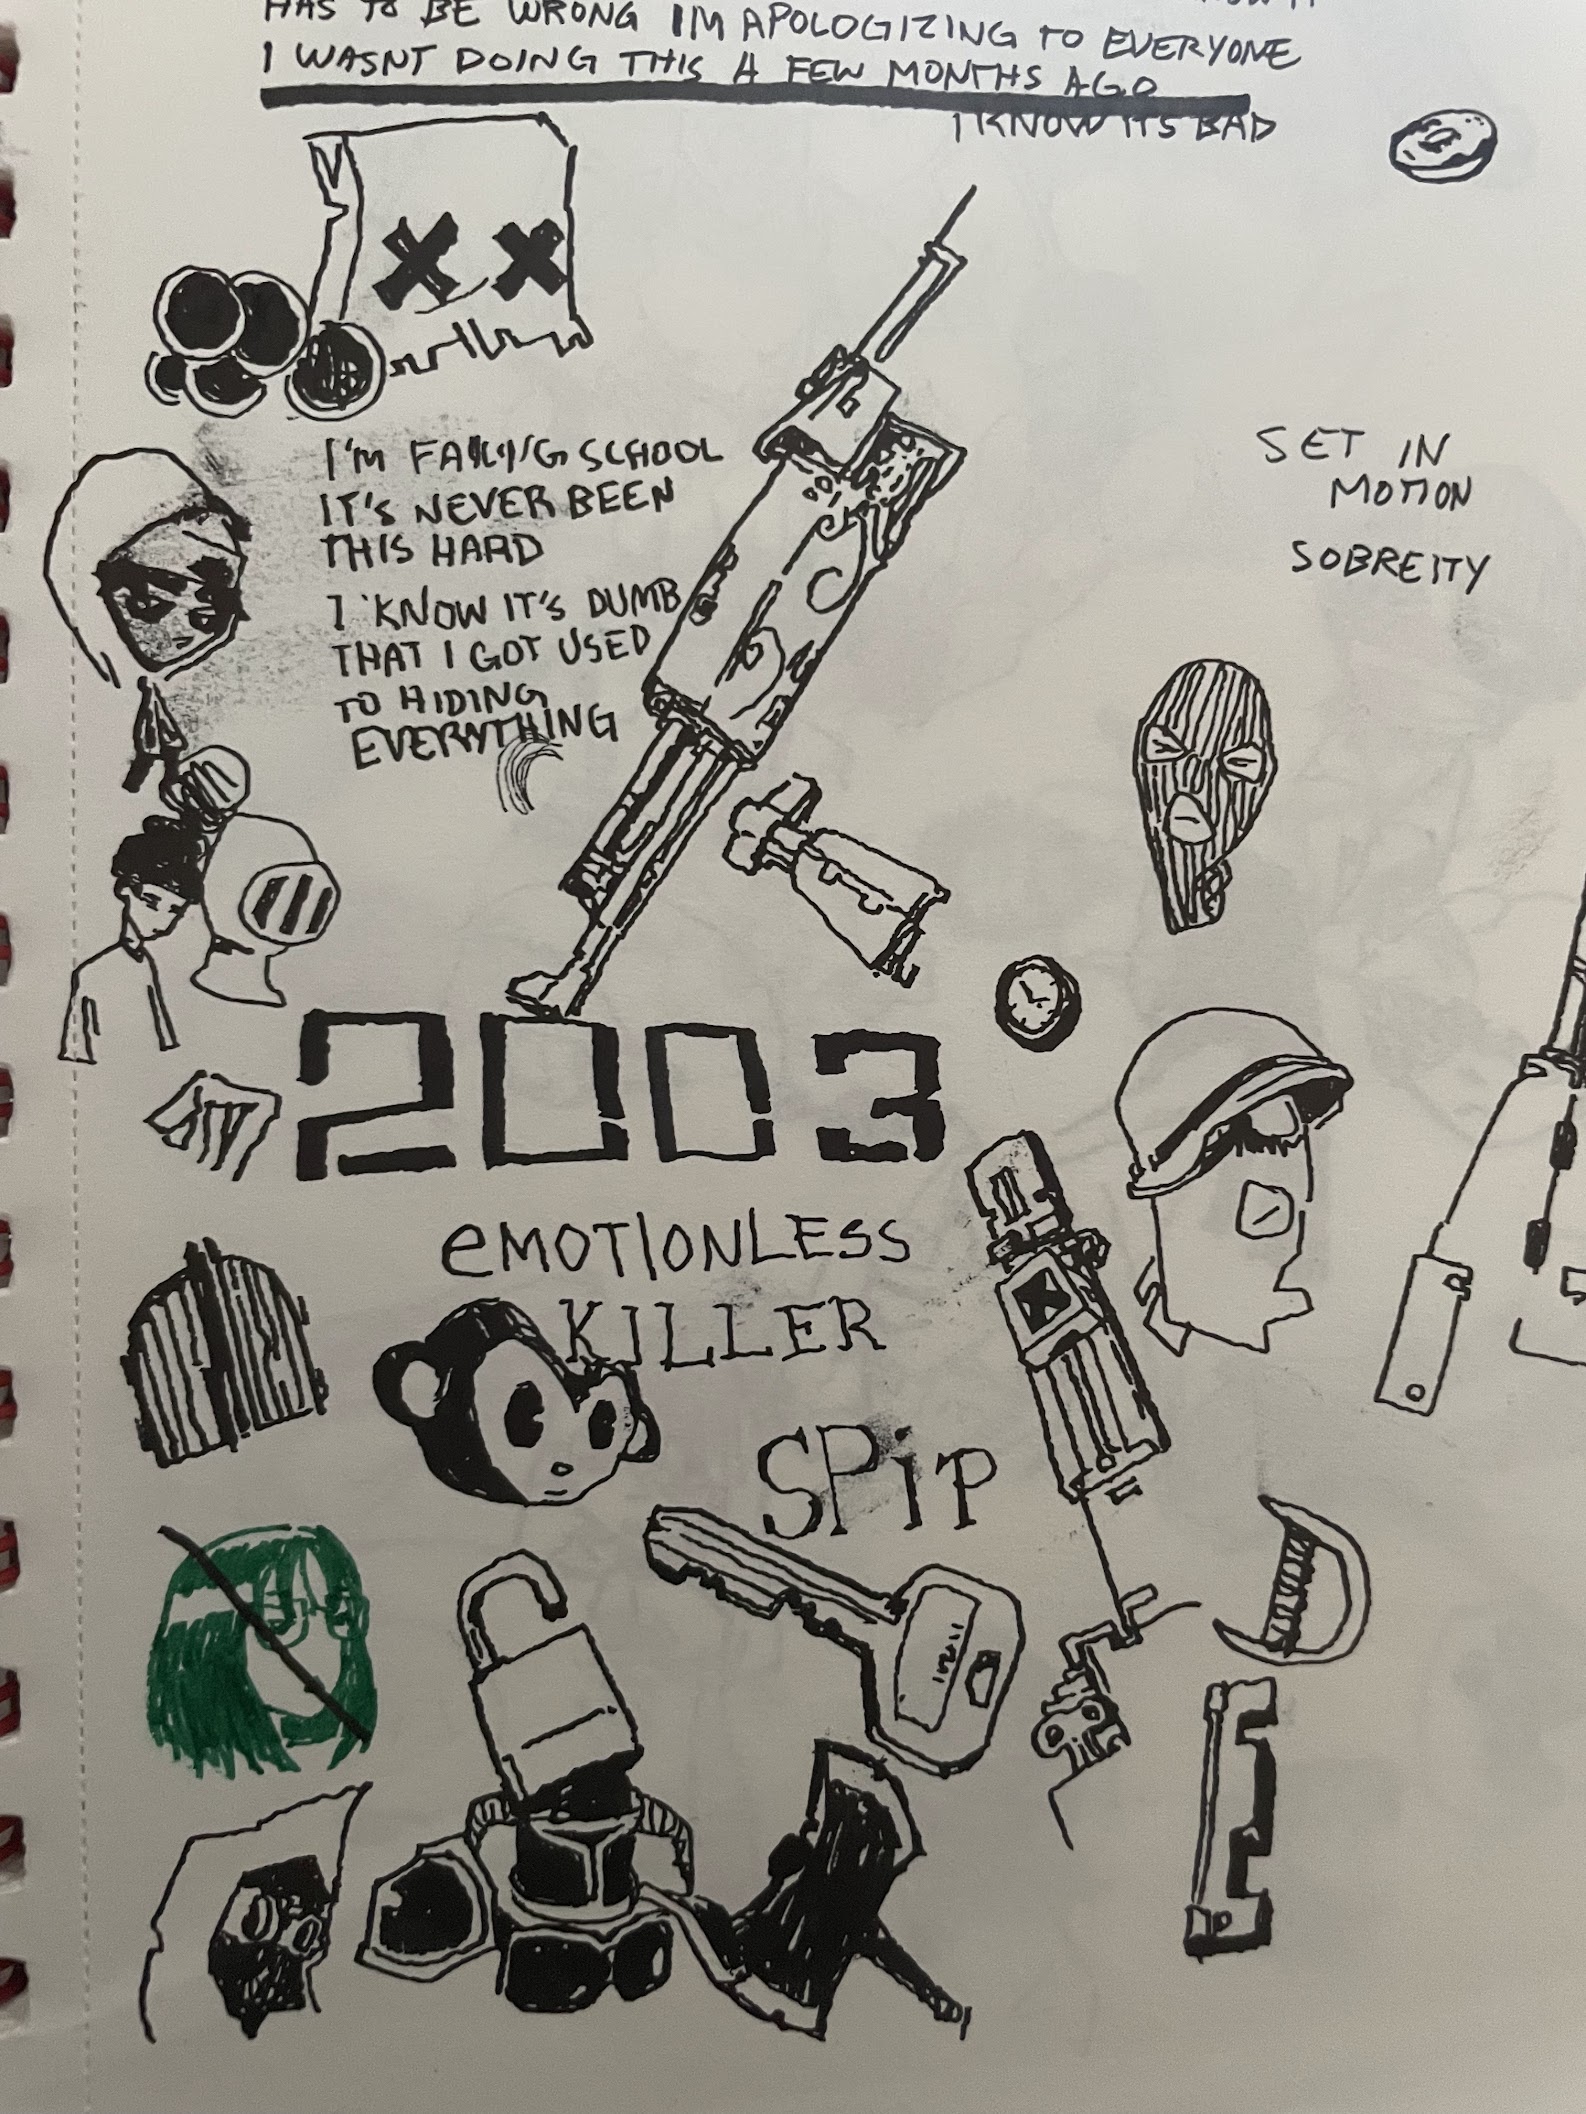 HAS TO BE WRONG IM APOLOGIZING TO EVERYONE
I WASNT DOING THIS A FEW MONTHS AGO
I KNOW ITS BAD
I'M FAILING SCHOOL
IT'S NEVER BEEN
THIS HARD
I KNOW IT'S DUMB
THAT I GOT USED
TO HIDING
EVERYTHING
SET IN
MOTION
SOBREITY
2003
eMOTIONLESS
KILLER
SPiP